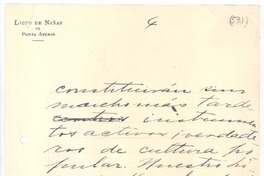 Liceo de Niñas
de
Punta-Arenas
4
(591)
constituirán sino
mucho más tarde
centros instrumen
tos activos i verdade
ros de cultura po
pular. Nuestro